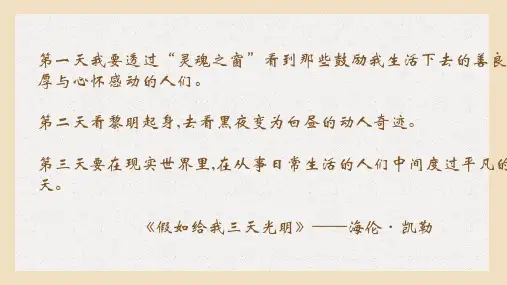 第一天我要透过“灵魂之窗”看到那些鼓励我生活下去的善良
厚与心怀感动的人们。
第二天看黎明起身,去看黑夜变为白昼的动人奇迹。
第三天要在现实世界里,在从事日常生活的人们中间度过平凡的
天。
《假如给我三天光明》——海伦·凯勒